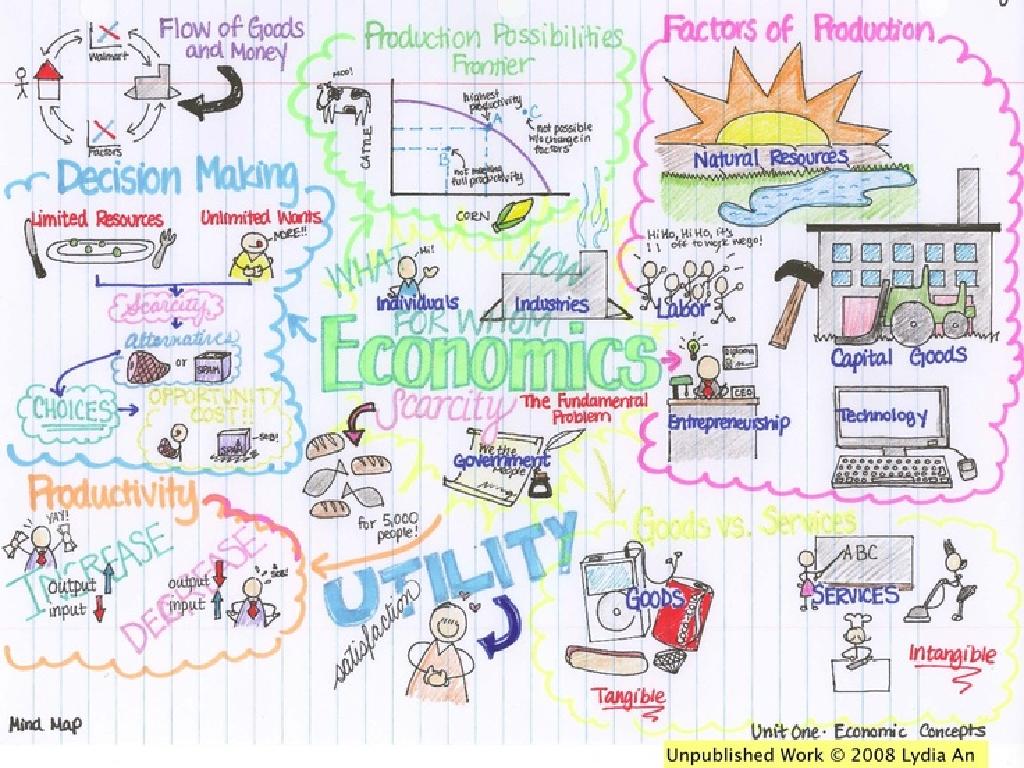 Flow of Goods
and Money
Walmart
Factors
Production Possibilities
Frontier
MOO!
CATTLE
highest
productivity
A
C
not possible
w/o change in
factors
B
not reaching
full productivity
CORN
Factors of Production
Natural Resources
Hi Ho, Hi Ho, it's
off to work we go!
Labor
Capital Goods
Diploma
CEO
Entrepreneurship
Technology
Decision Making
Limited Resources
Unlimited Wants
MORE!!
Scarcity
Alternatives
or
SPAM
CHOICES
OPPORTUNITY
COST!!
SPAM
SOB!
WHAT
HOW
Hi!
Individuals
Industries
FOR WHOM
Economics
Scarcity
The Fundamental
Problem
We the
People
Government
for 5,000
people!
Productivity
YAY!
INCREASE
output
input
DECREASE
output
input
SOB!
UTILITY
satisfaction
Goods vs. Services
GOODS
Tangible
ABC
SERVICES
Intangible
Mind Map
Unit One. Economic Concepts
Unpublished Work © 2008 Lydia An